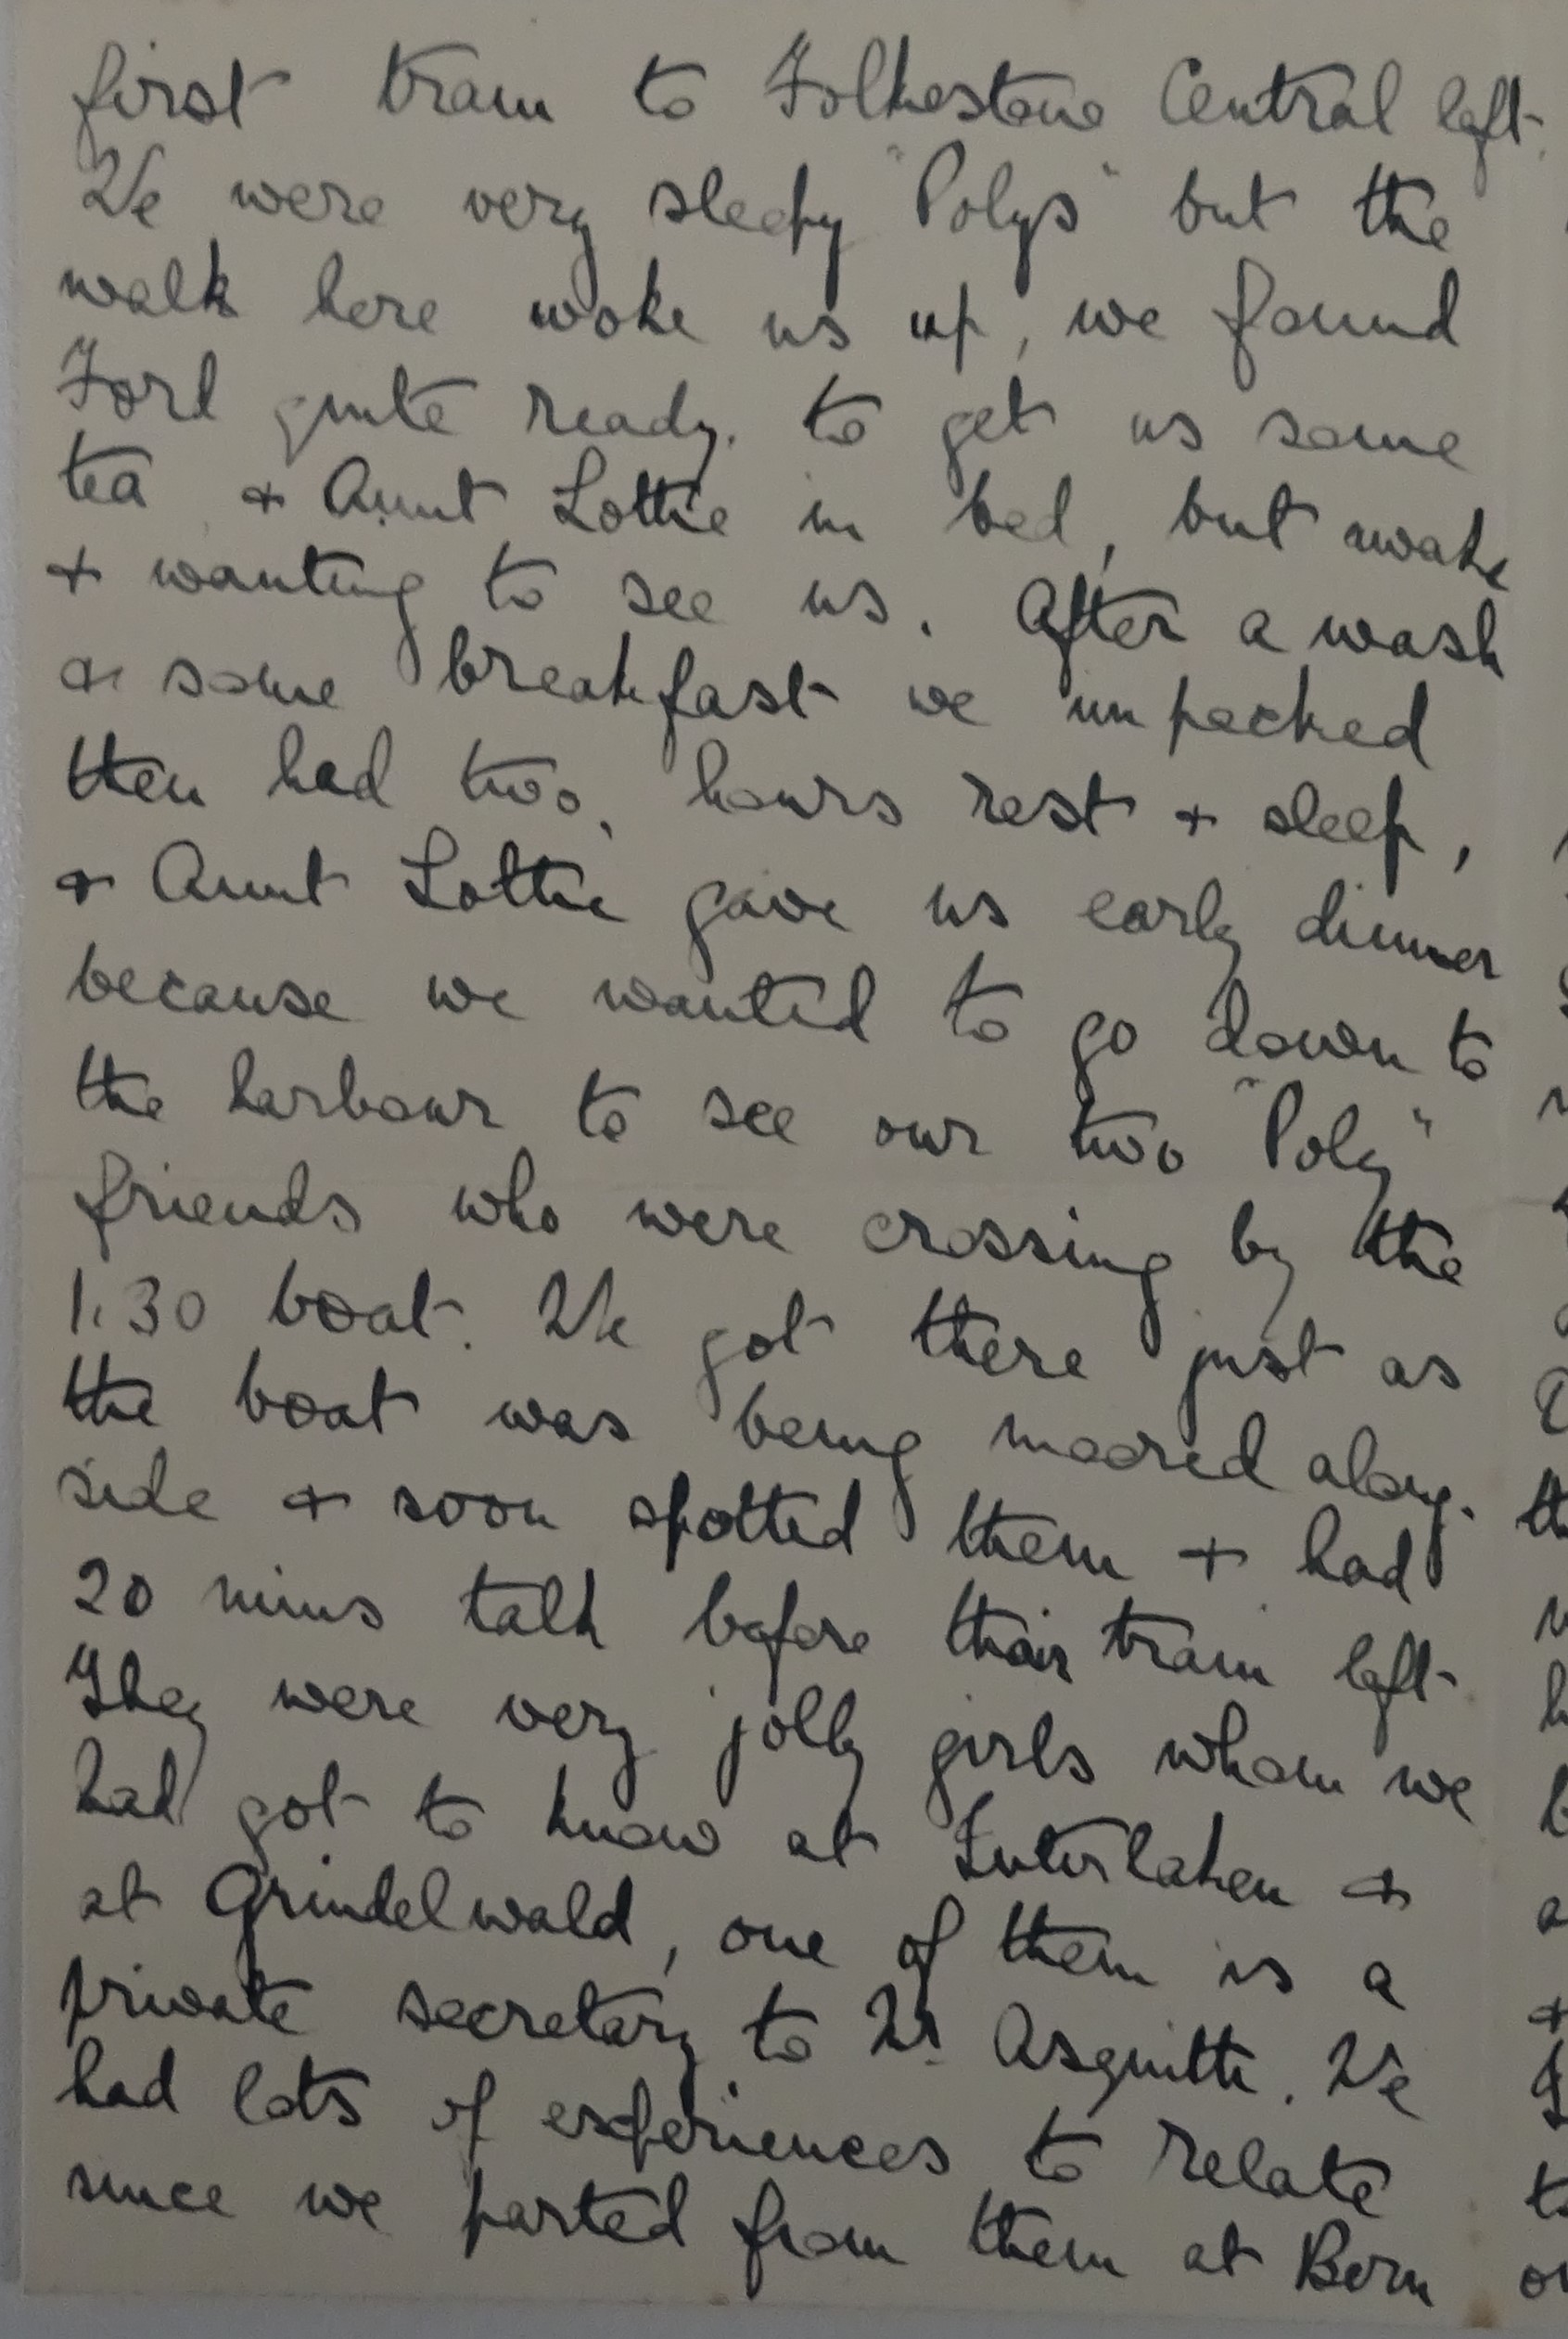 first train to Folkestone Central left.
We were very sleepy "Polys" but the
walk here woke us up, we found
quite ready. to get us some
tea & Aunt Lottie in bed, but awake
& wanting to see us. After a wash
& some breakfast we unpacked
then had two, hours rest & sleep,
& Aunt Lottie gave us early dinner
because we wanted to go down to
the harbour to see our two "Poly"
friends who were crossing by the
1.30 boat. We got there just as
the boat was being moored along-
side & soon spotted them & had
20 mins talk before their train left.
They were very jolly girls whom we
had got to know at Interlaken &
at Grindelwald, one of them is a
private secretary to Mr. Asquith. We
had lots of experiences to relate
since we parted from them at Bern